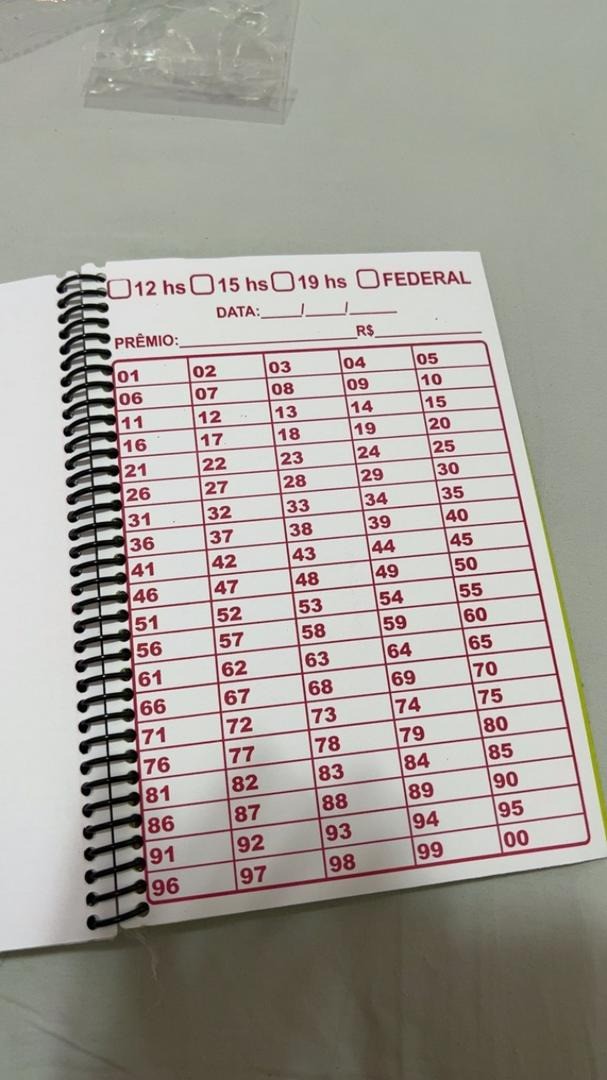 12 hs 15 hs 19 hs FEDERAL
DATA:____/____/_____
PRÊMIO:____________________R$____________
01 02 03 04 05
06 07 08 09 10
11 12 13 14 15
16 17 18 19 20
21 22 23 24 25
26 27 28 29 30
31 32 33 34 35
36 37 38 39 40
41 42 43 44 45
46 47 48 49 50
51 52 53 54 55
56 57 58 59 60
61 62 63 64 65
66 67 68 69 70
71 72 73 74 75
76 77 78 79 80
81 82 83 84 85
86 87 88 89 90
91 92 93 94 95
96 97 98 99 00